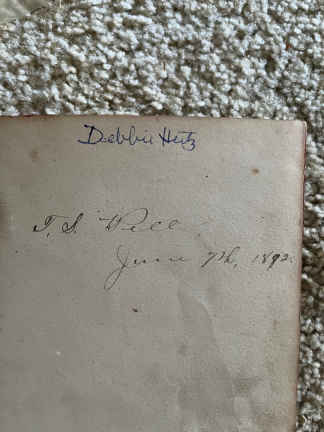 Debbie Hutz
T. S. Pell
June 7th, 1892.